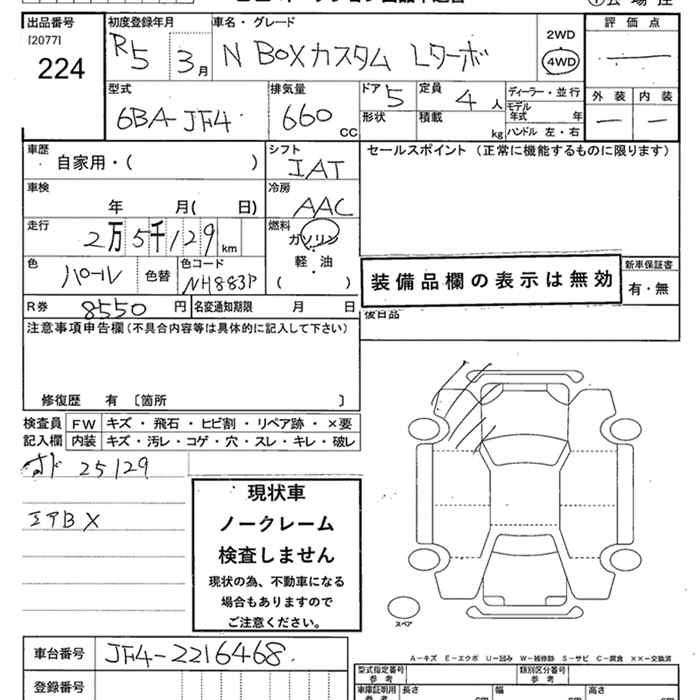 出品番号 初度登録年月 車名・グレード 評価点
[2077]
224 R5 3月 N BOXカスタム Lターボ 2WD 4WD
外装 内装
型式 排気量 ドア 5 定員 4人 ディーラー・並行
6BA-JF4 660 CC 形状 積載 kg モデル年式 年
ハンドル 左・右
車歴 シフト セールスポイント(正常に機能するものに限ります)
自家用・( ) IAT
車検 冷房
年 月( 日) AAC
走行 燃料
2万5千129 km ガソリン
軽・油
( )
色 パール 色替 色コード NH883P
装備品欄の表示は無効
新車保証書
有・無
R券 8550円 名変通知期限 月 日
後日品
注意事項申告欄(不具合内容等は具体的に記入して下さい)
修復歴 有 〔箇所 〕
検査員 FW キズ・飛石・ヒビ割・リペア跡・×要
記入欄 内装 キズ・汚レ・コゲ・穴・スレ・キレ・破レ
オド 25129
エアB X
現状車
ノークレーム
検査しません
現状の為、不動車になる
場合もありますので
ご注意ください。
スペア
車台番号 JF4-2216468
A-キズ E-エクボ U-凹み W-補修跡 S-サビ C-腐食 ××-交換済
登録番号
型式指定番号 類別区分番号
参考
車庫証明用 長さ 幅 高さ
参考 cm cm cm